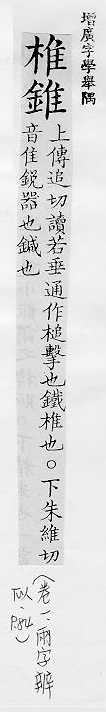 增廣字學舉隅
椎錐
上傳追切讀若垂通作槌擊也鐵椎也○下朱維切
音隹銳器也鍼也
(卷一.兩字辨
似.P.84)